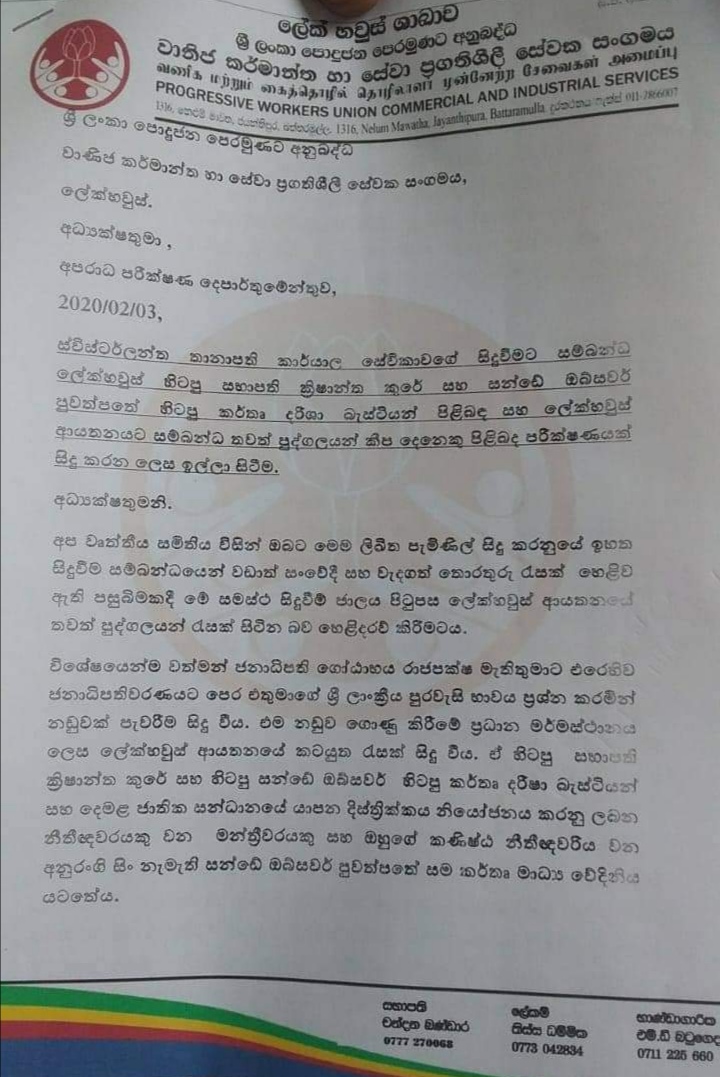 ලේක් හවුස් ශාඛාව
ශ්‍රී ලංකා පොදුජන පෙරමුණට අනුබද්ධ
වාණිජ කර්මාන්ත හා සේවා ප්‍රගතිශීලී සේවක සංගමය
வணிக மற்றும் கைத்தொழில் தொழிலாளர் முன்னேற்ற சேவைகள் அமைப்பு
PROGRESSIVE WORKERS UNION COMMERCIAL AND INDUSTRIAL SERVICES
1316, නෙළුම් මාවත, ජයන්තිපුර, බත්තරමුල්ල. 1316, Nelum Mawatha, Jayanthipura, Battaramulla. දුරකථනය ෆැක්ස් 011-2866007
ශ්‍රී ලංකා පොදුජන පෙරමුණට අනුබද්ධ
වාණිජ කර්මාන්ත හා සේවා ප්‍රගතිශීලී සේවක සංගමය,
ලේක්හවුස්.
අධ්‍යක්ෂතුමා ,
අපරාධ පරීක්ෂණ දෙපාර්තුමේන්තුව,
2020/02/03,
ස්විස්ටර්ලන්ත තානාපති කාර්යාල සේවිකාවගේ සිදුවීමට සම්බන්ධ
ලේක්හවුස් හිටපු සභාපති ක්‍රිශාන්ත කුරේ සහ සන්ඩේ ඔබ්සවර්
පුවත්පතේ හිටපු කර්තෘ දරිශා බැස්ටියන් පිළිබඳ සහ ලේක්හවුස්
ආයතනයට සම්බන්ධ තවත් පුද්ගලයන් කීප දෙනෙකු පිළිබද පරීක්ෂණයක්
සිදු කරන ලෙස ඉල්ලා සිටීම.
අධ්‍යක්ෂතුමනි.
අප වෘත්තීය සමිතිය විසින් ඔබට මෙම ලිඛිත පැමිණිල් සිදු කරනුයේ ඉහත
සිදුවීම සම්බන්ධයෙන් වඩාත් සංවේදී සහ වැදගත් තොරතුරු රැසක් හෙළිව
ඇති පසුබිමකදී මේ සමස්ථ සිදුවීම් ජාලය පිටුපස ලේක්හවුස් ආයතනයේ
තවත් පුද්ගලයන් රැසක් සිටින බව හෙළිදරව් කිරීමටය.
විශේෂයෙන්ම වත්මන් ජනාධිපති ගෝඨාභය රාජපක්ෂ මැතිතුමාට එරෙහිව
ජනාධිපතිවරණයට පෙර එතුමාගේ ශ්‍රී ලාංකීය පුරවැසි භාවය ප්‍රශ්න කරමින්
නඩුවක් පැවරීම සිදු විය. එම නඩුව ගොණු කිරීමේ ප්‍රධාන මර්මස්ථානය
ලෙස ලේක්හවුස් ආයතනයේ කටයුතු රැසක් සිදු විය. ඒ හිටපු සභාපති
ක්‍රිෂාන්ත කුරේ සහ හිටපු සන්ඩේ ඔබ්සවර් හිටපු කර්තෘ දරිෂා බැස්ටියන්
සහ දෙමළ ජාතික සන්ධානයේ යාපන දිස්ත්‍රික්කය නියෝජනය කරනු ලබන
නීතීඥවරයකු වන මන්ත්‍රීවරයකු සහ ඔහුගේ කණිෂ්ඨ නීතීඥවරිය වන
අනුරංගි සිං නැමැති සන්ඩේ ඔබ්සවර් පුවත්පතේ සම කර්තෘ මාධ්‍ය වේදිනිය
යටතේය.
සභාපති
චන්දන බණ්ඩාර
0777 270068
ලේකම්
තිස්ස ධම්මික
0773 042834
භාණ්ඩාගාරික
එම්.ඩී
0711 225 660